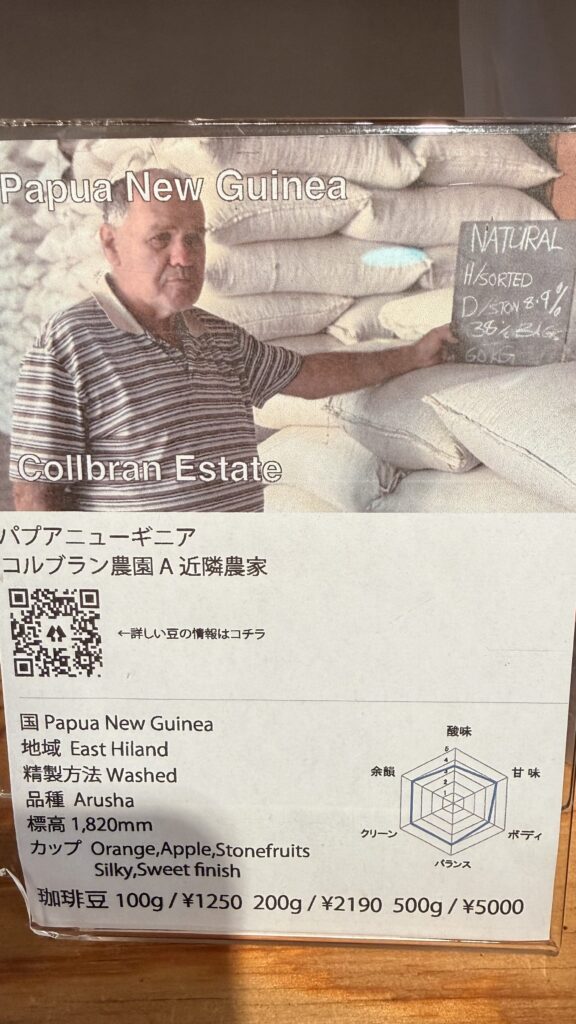 Papua New Guinea
NATURAL
H/SORTED
D/STON 8.9%
38% BAGS
60KG
Collbran Estate
パプアニューギニア
コルブラン農園 A 近隣農家
←詳しい豆の情報はコチラ
国 Papua New Guinea
地域 East Hiland
精製方法 Washed
品種 Arusha
標高 1,820mm
カップ Orange,Apple,Stonefruits
Silky,Sweet finish
酸味
5
4
3
2
1
余韻
甘味
クリーン
ボディ
バランス
珈琲豆 100g / ¥1250 200g / ¥2190 500g / ¥5000